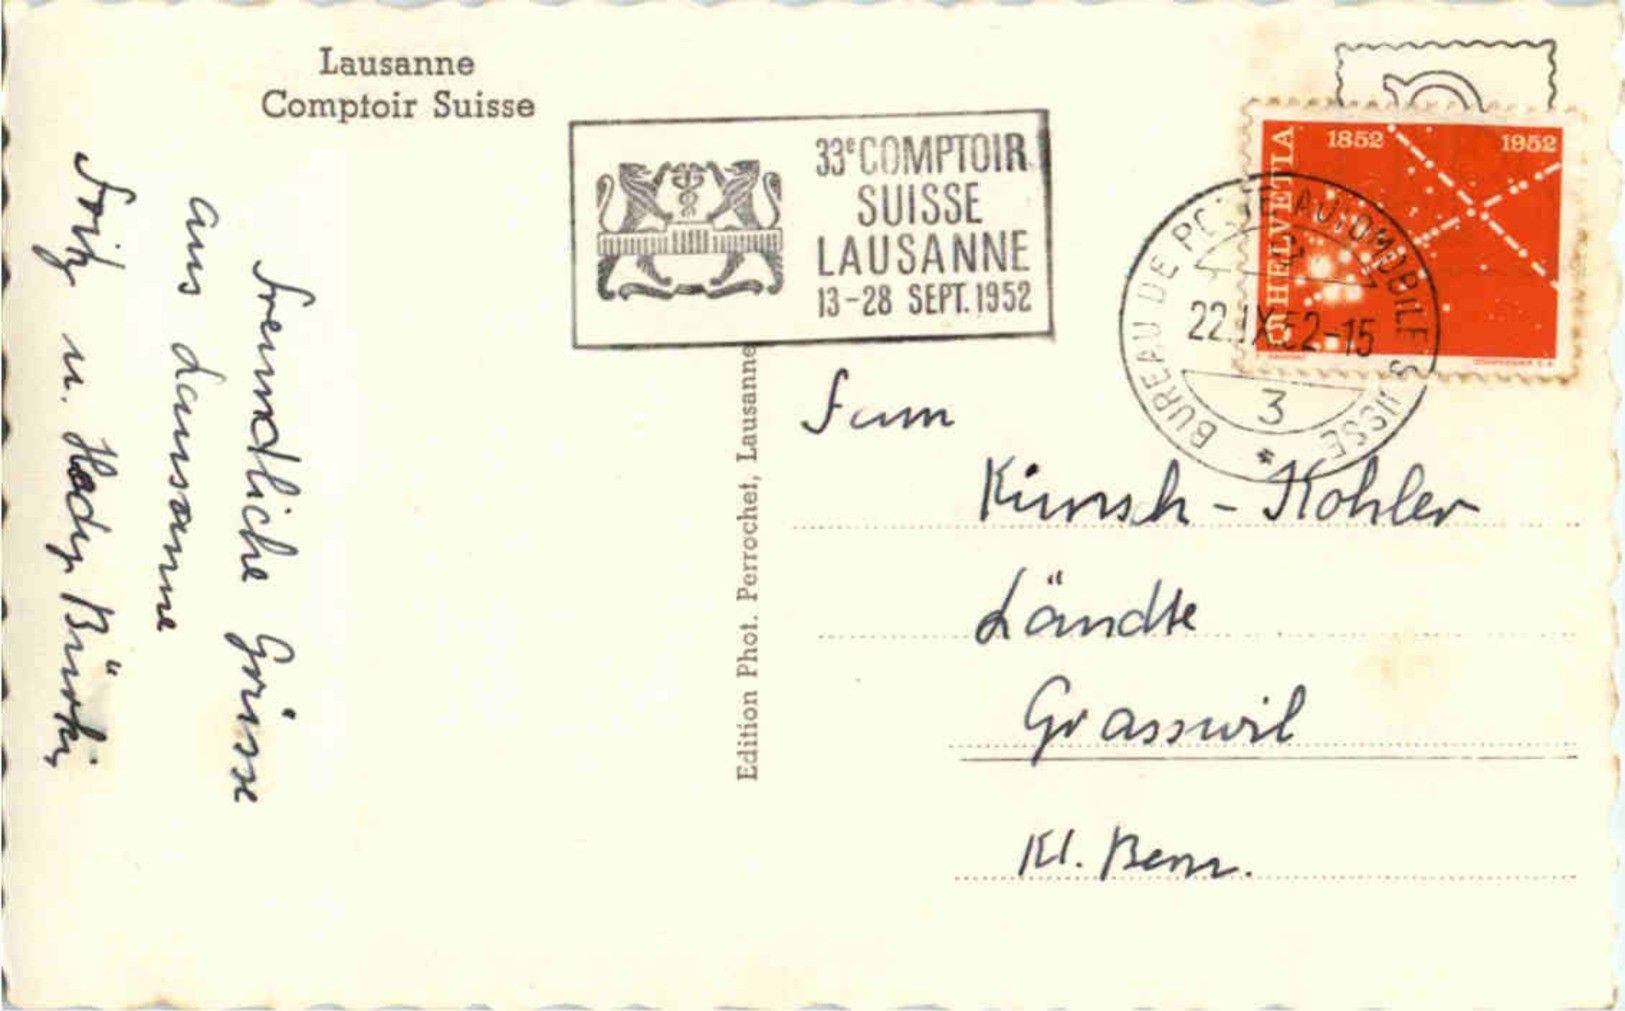 Lausanne
Comptoir Suisse
33e COMPTOIR
SUISSE
LAUSANNE
13-28 SEPT. 1952
HELVETIA
1852 1952
BUREAU DE POSTE AUTOMOBILE SUISSE
22.IX.52-15
3
*
Freundliche Grüsse
aus Lausanne
Fritz u. Hedy Bürki
Edition Phot. Perrochet, Lausanne
Fam
Künsch-Kohler
Ländte
Grasswil
Kt. Bern.